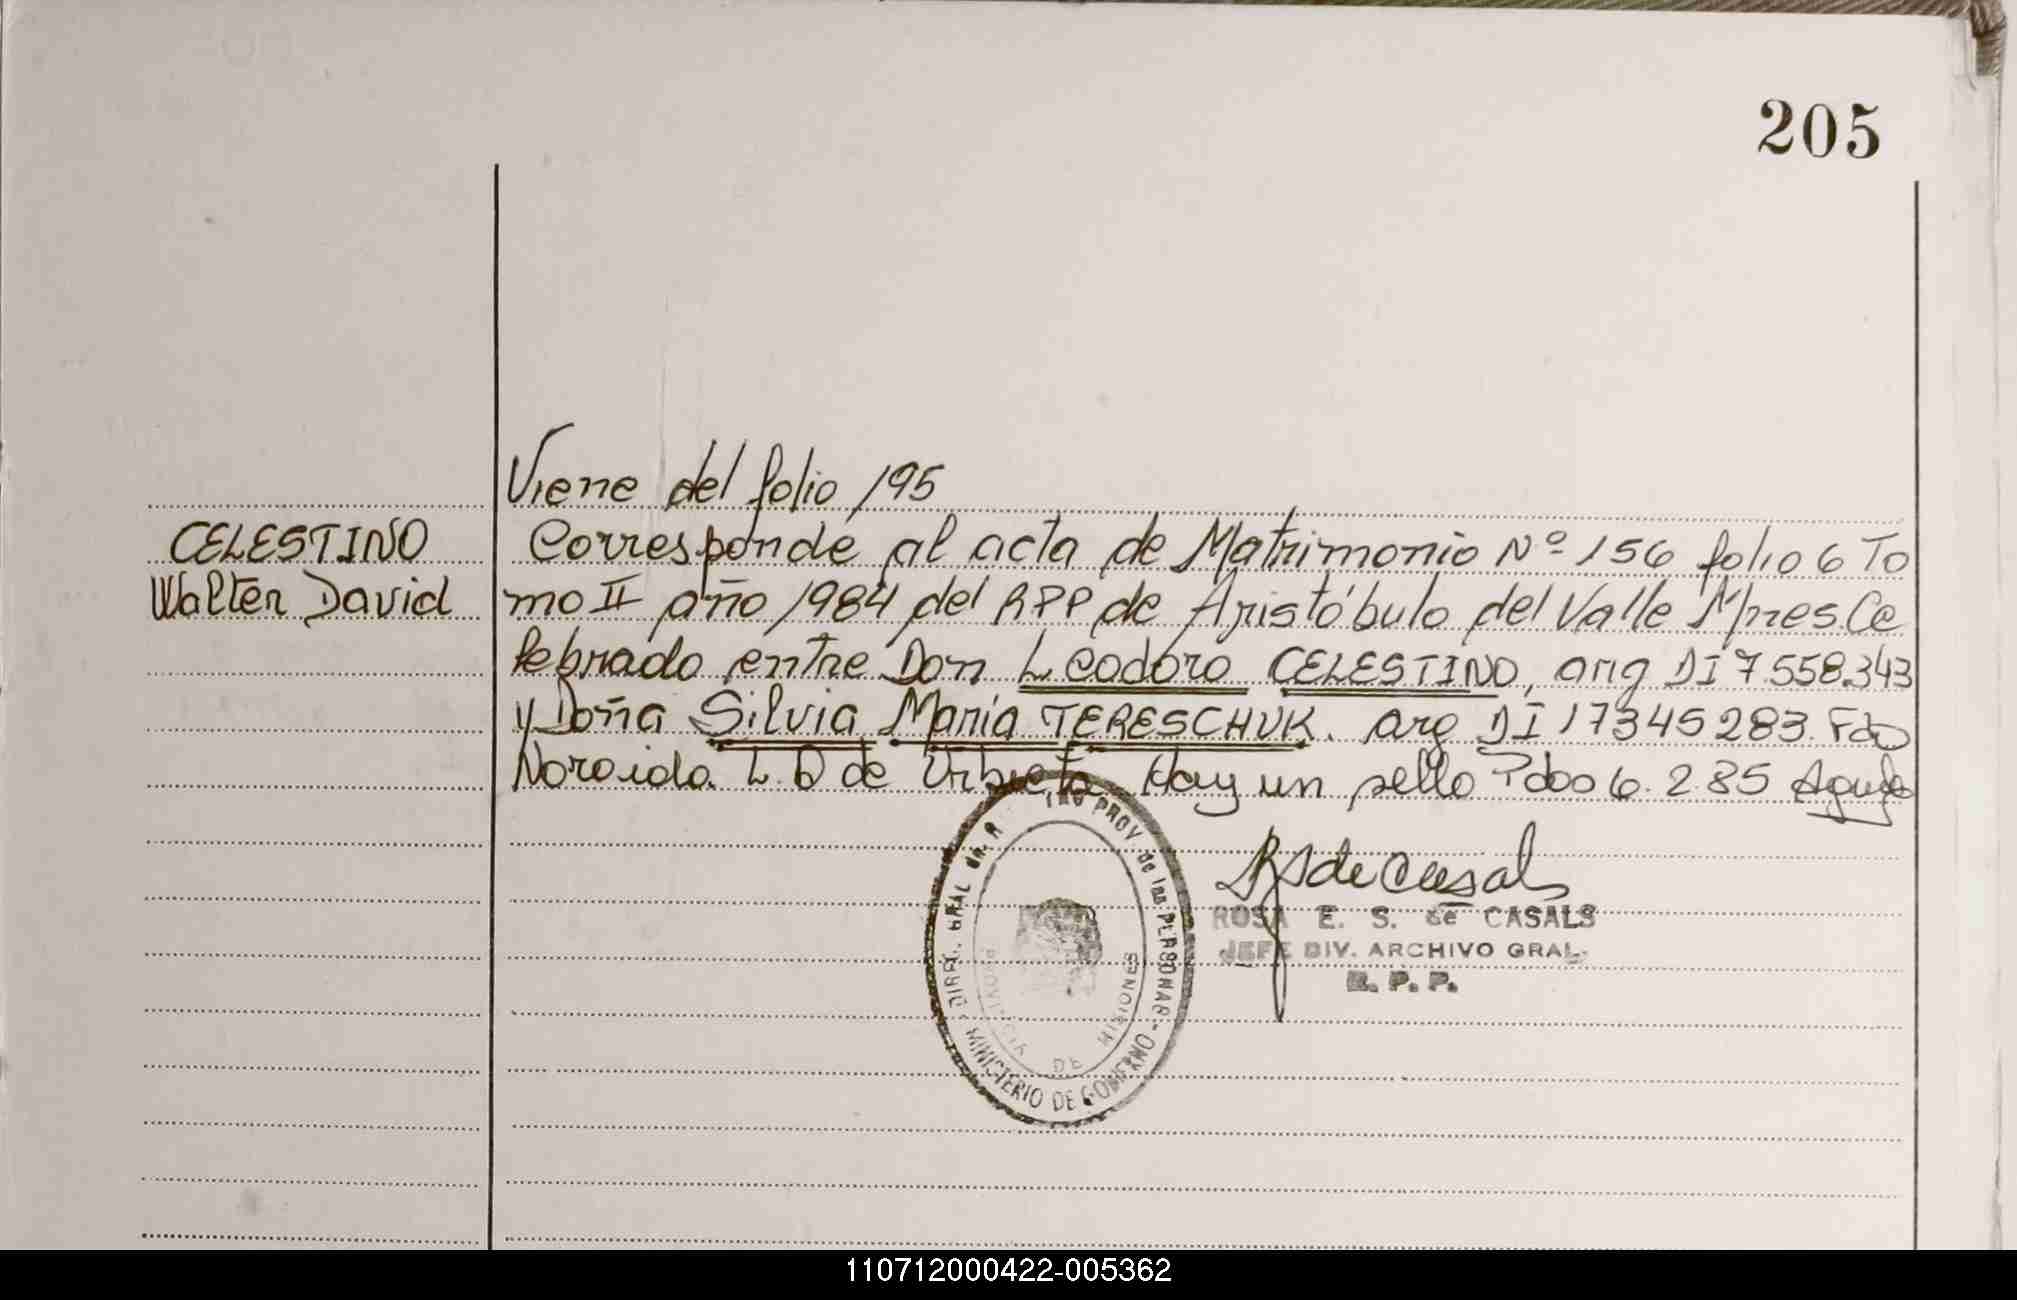 205
Viene del folio 195
CELESTINO
Walter David
Corresponde al acta de Matrimonio Nº 156 folio 6 To
mo II año 1984 del RPP de Aristóbulo del Valle Mnes. Ce
lebrado entre Don Leodoro CELESTINO, arg DI 7.558.343
y Doña Silvia María TERESCHUK. arg DI 17345283. Fdo
L. D de Urbieta. Hay un sello Pdoo 6.2.85
ROSA E. S. de CASALS
JEFE DIV. ARCHIVO GRAL.
R. P. P.
DIREC. GRAL del R PROV. de las PERSONAS - MINISTERIO DE GOBIERNO
PROVINCIA DE MISIONES
110712000422-005362